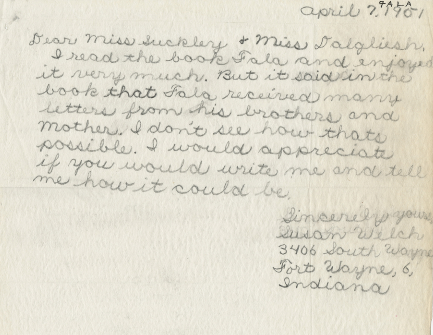 FALA
April 7, 1951
Dear Miss Suckley & Miss Dalgliesh,
I read the book Fala and enjoyed
it very much. But it said in the
book that Fala received many
letters from his brothers and
Mother. I don't see how thats
possible. I would appreciate
if you would write me and tell
me how it could be.
Sincerely yours,
Susan Welch
3406 South Wayne
Fort Wayne, 6,
Indiana